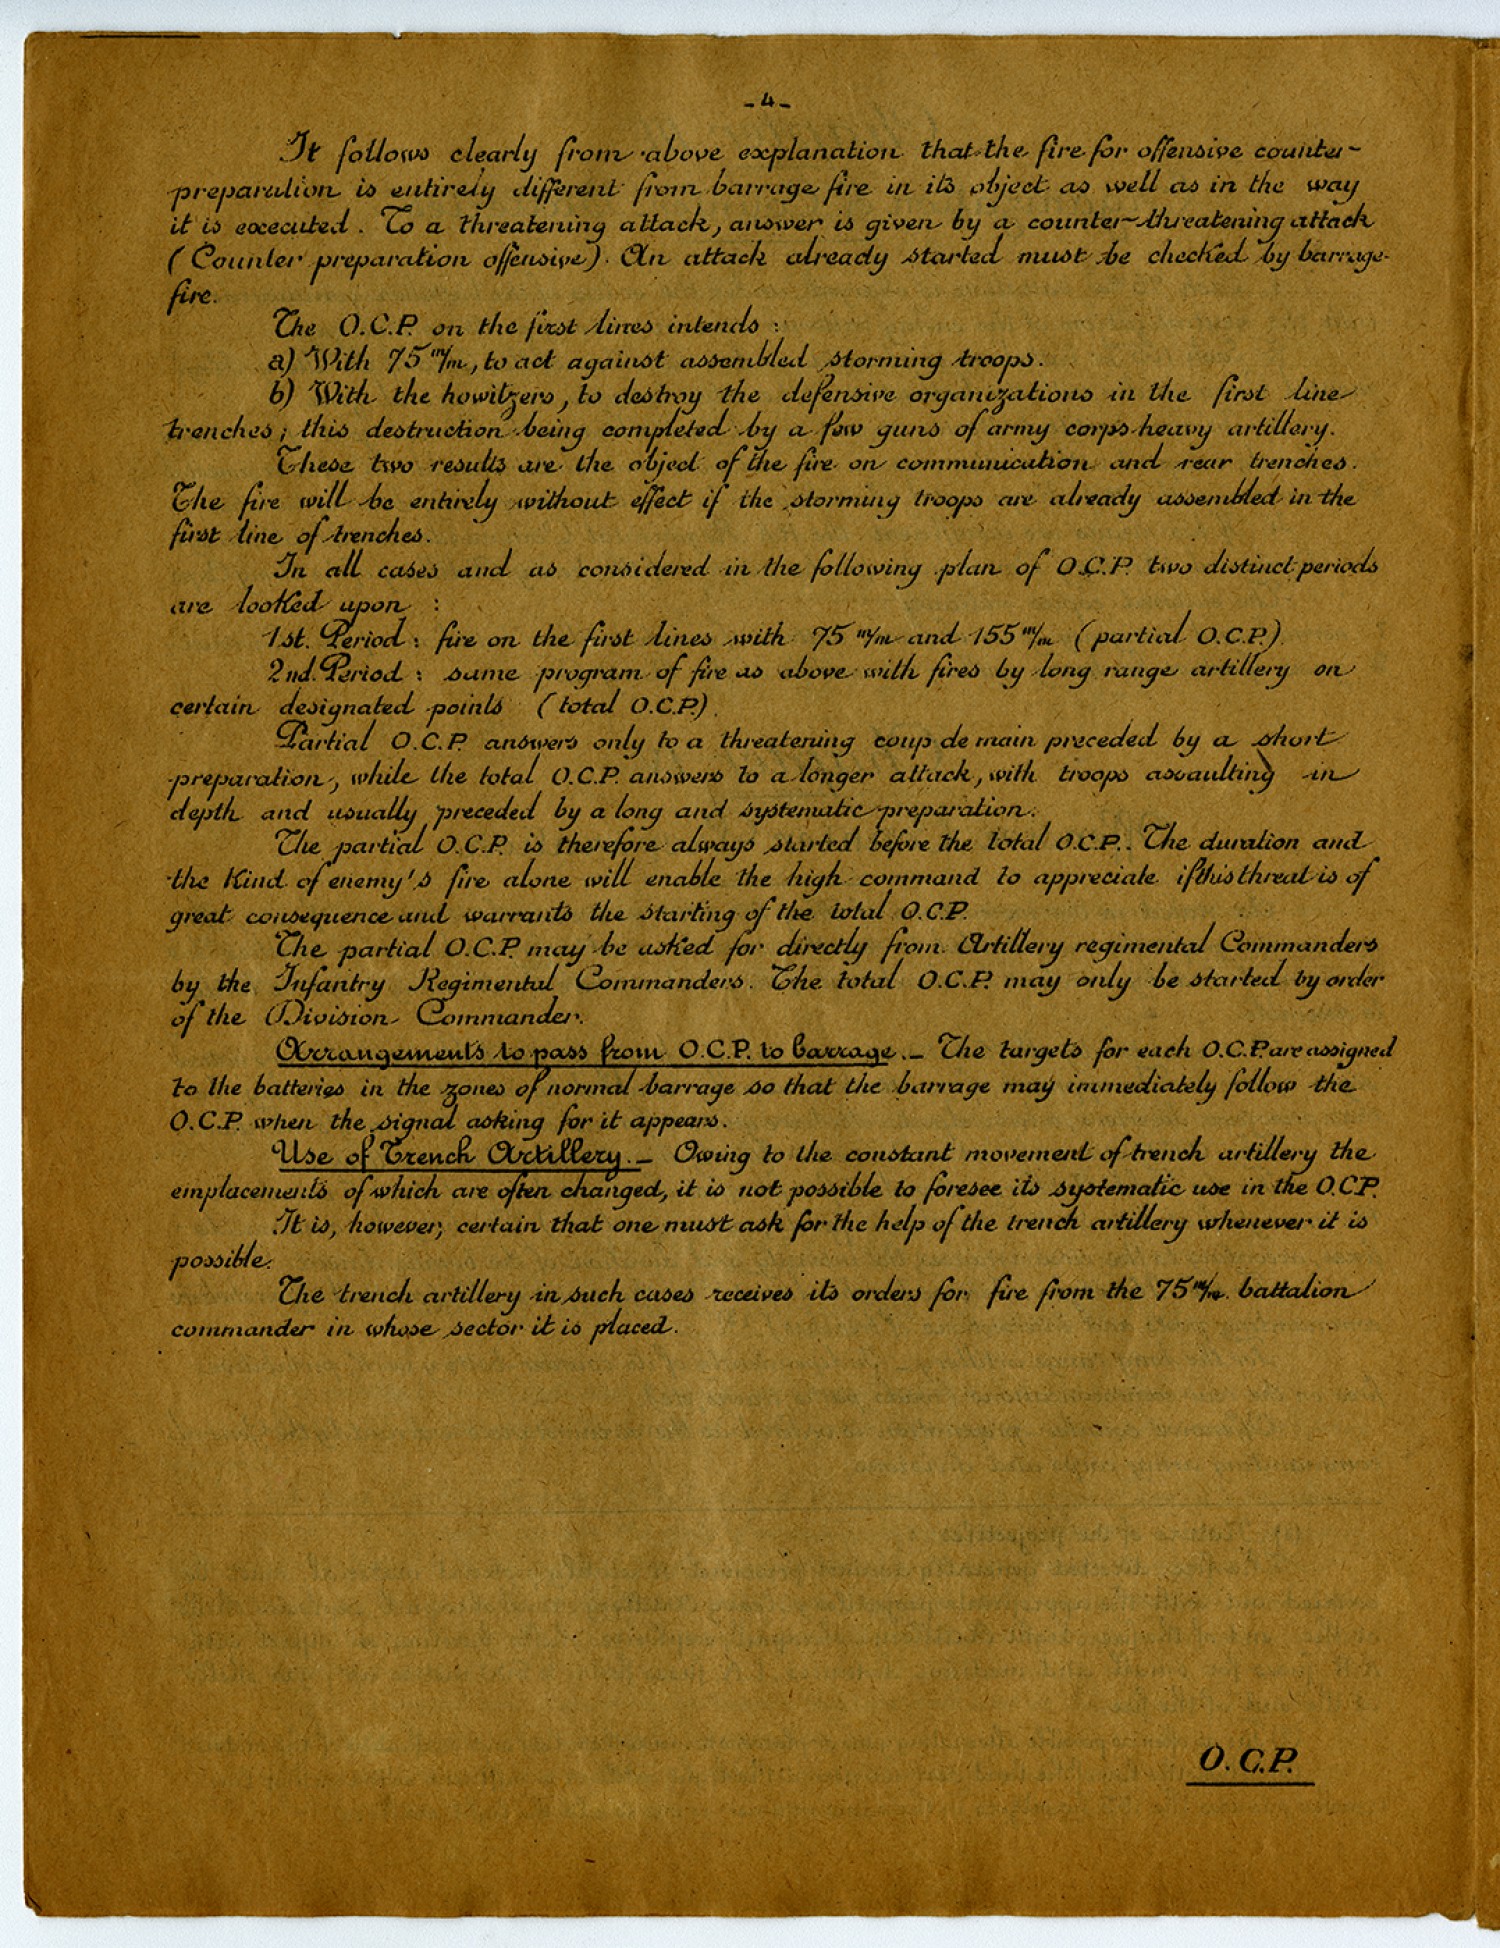 -4-
It follows clearly from above explanation that the fire for offensive counter-
preparation is entirely different from barrage fire in its object as well as in the way
it is executed. To a threatening attack, answer is given by a counter-threatening attack
(Counter preparation offensive). An attack already started must be checked by barrage-
fire.
The O.C.P. on the first lines intends :
a) With 75 m/m, to act against assembled storming troops.
b) With the howitzers, to destroy the defensive organizations in the first line
trenches; this destruction being completed by a few guns of army corps heavy artillery.
These two results are the object of the fire on communication and rear trenches.
The fire will be entirely without effect if the storming troops are already assembled in the
first line of trenches.
In all cases and as considered in the following plan of O.C.P. two distinct periods
are looked upon :
1st. Period : fire on the first lines with 75 m/m and 155 m/m (partial O.C.P.)
2nd. Period : same program of fire as above with fires by long range artillery on
certain designated points (total O.C.P.).
Partial O.C.P. answers only to a threatening coup de main preceded by a short
preparation, while the total O.C.P. answers to a longer attack, with troops assaulting in
depth and usually preceded by a long and systematic preparation.
The partial O.C.P. is therefore always started before the total O.C.P.. The duration and
the Kind of enemy's fire alone will enable the high command to appreciate if this threat is of
great consequence and warrants the starting of the total O.C.P.
The partial O.C.P. may be asked for directly from Artillery regimental Commanders
by the Infantry Regimental Commanders. The total O.C.P. may only be started by order
of the Division Commander.
Arrangements to pass from O.C.P. to barrage.- The targets for each O.C.P. are assigned
to the batteries in the zones of normal barrage so that the barrage may immediately follow the
O.C.P. when the signal asking for it appears.
Use of Trench Artillery.- Owing to the constant movement of trench artillery the
emplacements of which are often changed, it is not possible to foresee its systematic use in the O.C.P.
It is, however, certain that one must ask for the help of the trench artillery whenever it is
possible.
The trench artillery in such cases receives its orders for fire from the 75 m/m. battalion
commander in whose sector it is placed.
O.C.P.